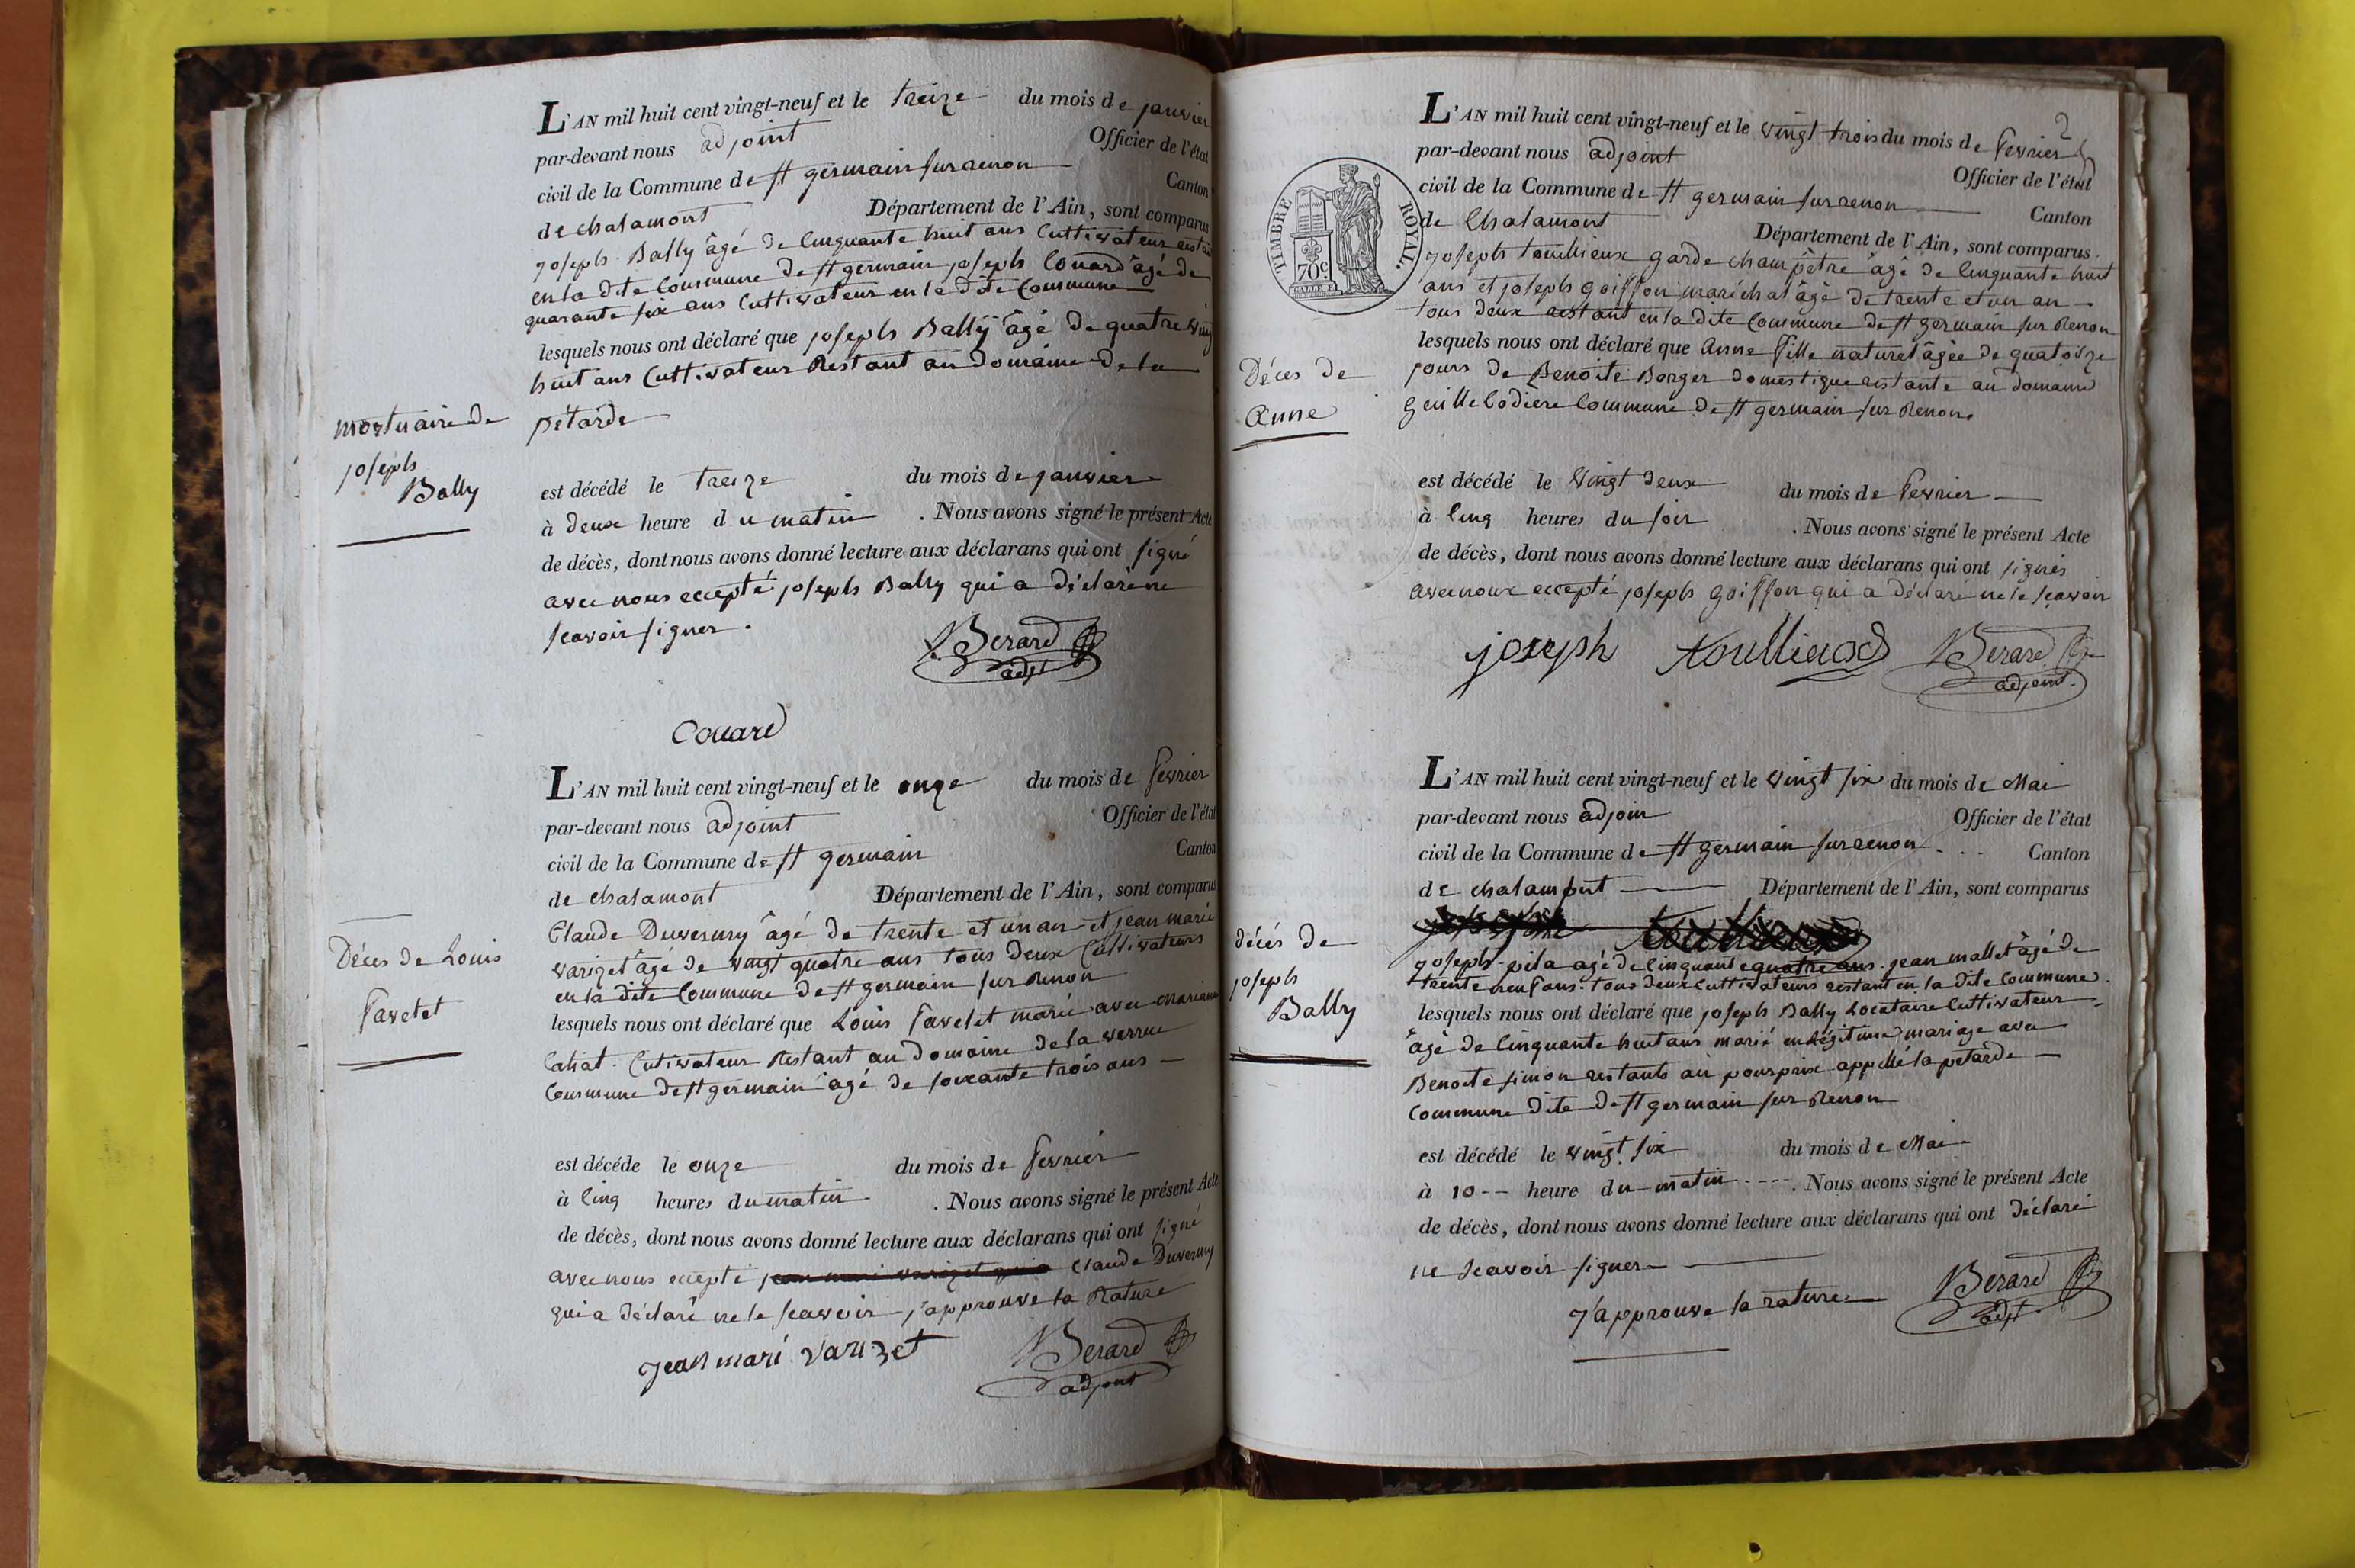 L'AN mil huit cent vingt-neuf et le treize du mois de janvier
par-devant nous adjoint Officier de l'état
civil de la Commune de st germain sur renon Canton
de chalamont Département de l'Ain, sont comparus
joseph Bally âgé de cinquante huit ans cultivateur
en la dite Commune de st germain joseph Couard âgé de
quarante six ans cultivateur en la dite Commune
lesquels nous ont déclaré que joseph Bally âgé de quatre vingt
huit ans cultivateur Restant au domaine de la
petarde
mortuaire de
joseph
Bally
est décédé le treize du mois de janvier
à deux heure du matin . Nous avons signé le présent Acte
de décès, dont nous avons donné lecture aux déclarans qui ont signé
avec nous eccepté joseph Bally qui a déclaré ne
scavoir signer.
Berard
adjt
Couard
L'AN mil huit cent vingt-neuf et le onze du mois de fevrier
par-devant nous adjoint Officier de l'état
civil de la Commune de st germain Canton
de chalamont Département de l'Ain, sont comparus
Claude Duverury âgé de trente et un an et jean marie
varizet âgé de vingt quatre ans tous deux Cultivateurs
en la dite Commune de st germain sur Renon
lesquels nous ont déclaré que Louis favelet marié avec mariane
Cutivateur Restant au domaine de la verrue
Commune de st germain agé de soixante trois ans
Déces de Louis
favelet
est décéde le onze du mois de fevrier
à cinq heures du matin . Nous avons signé le présent Acte
de décès, dont nous avons donné lecture aux déclarans qui ont signé
avec nous eccepté jean mari varizet qui a claude Duverury
qui a déclaré ne le scavoir j'approuve la Rature
jean mari varizet
Berard
adjoint
2
L'AN mil huit cent vingt-neuf et le vingt trois du mois de fevrier
par-devant nous adjoint Officier de l'état
civil de la Commune de st germain sur renon Canton
de Chalamont Département de l'Ain, sont comparus
TIMBRE ROYAL.
70c
joseph toullieux garde champêtre âgé de cinquante huit
ans et joseph goiffon maréchal âgé de trente et un an
tous deux restant en la dite Commune de st germain sur Renon
lesquels nous ont déclaré que Anne fille naturel âgée de quatorze
jours de Benoite Borger domestique restante au domaine
Commune de st germain sur Renon.
Déces de
Anne
est décédé le vingt deux du mois de fevrier
à cinq heures du soir . Nous avons signé le présent Acte
de décès, dont nous avons donné lecture aux déclarans qui ont signés
avec nous eccepté joseph goiffon qui a déclaré ne le scavoir
joseph toullieux
Berard
adjoint.
L'AN mil huit cent vingt-neuf et le vingt six du mois de Mai
par-devant nous adjoin Officier de l'état
civil de la Commune de st germain sur renon Canton
de chalamont Département de l'Ain, sont comparus
joseph pila agé de cinquante quatre ans. jean mallet âgé de
trente neuf ans. tous deux cultivateurs restant en la dite Commune.
lesquels nous ont déclaré que joseph Bally Locataire Cultivateur
âgé de cinquante huit ans marié en Légitime mariage avec
Benoite simon restants au pourprix appellé la petarde
Commune dite de st germain sur Renon
décés de
joseph
Bally
est décédé le vingt six du mois de Mai
à 10 heure du matin . Nous avons signé le présent Acte
de décès, dont nous avons donné lecture aux déclarans qui ont déclaré
ne scavoir signer
j'approuve la rature
Berard
adjt